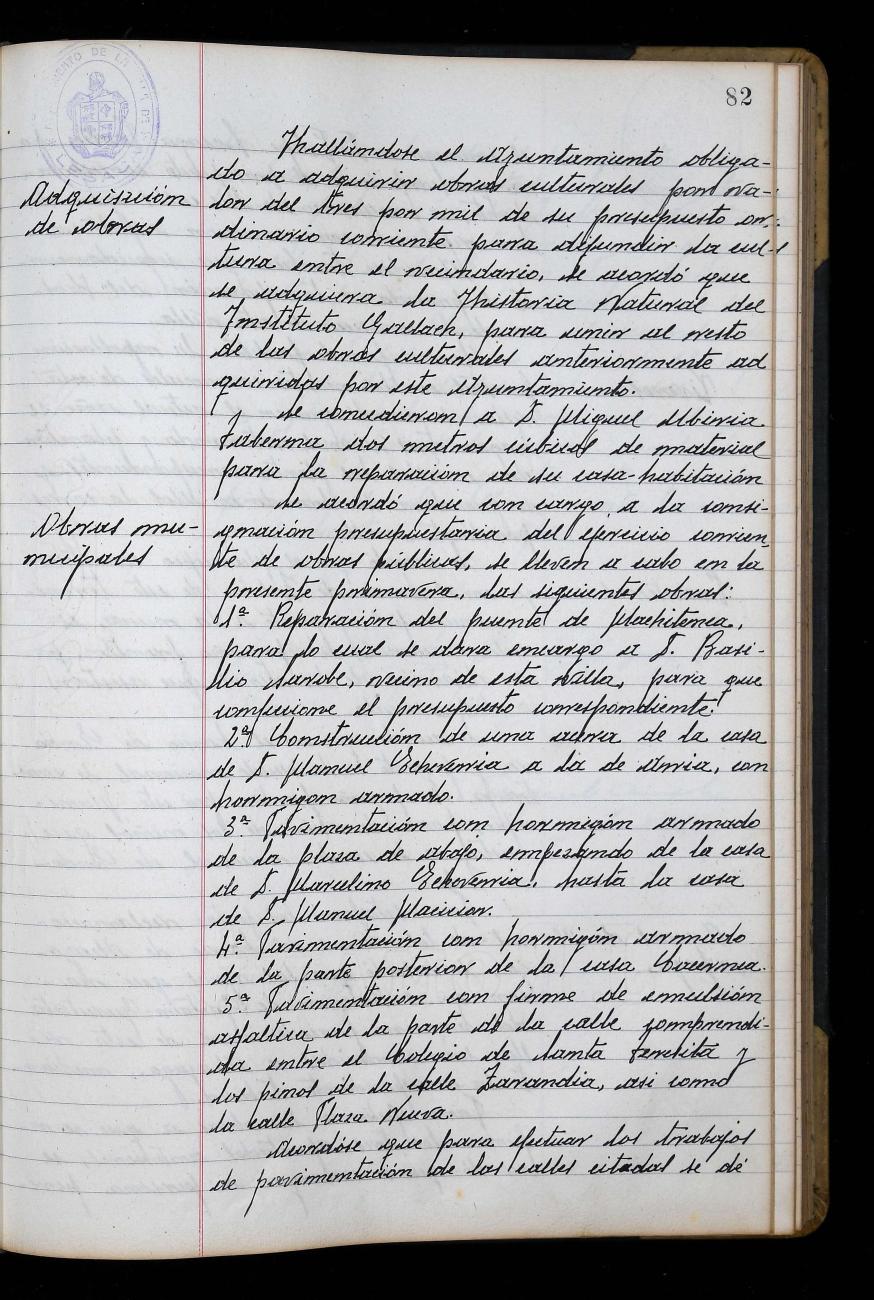 82
Hallándose el Ayuntamiento obliga-
do a adquirir obras culturales por va-
lor del tres por mil de su presupuesto or-
dinario corriente para difundir la cul-
tura entre el vecindario, se acordó que
se adquiera la Historia Natural del
Instituto Gallach, para unir al resto
de las obras culturales anteriormente ad
quiridas por este Ayuntamiento.
Adquisición
de obras
Se concedieron a D. Miguel Ubiria
Taberna dos metros cúbicos de material
para la reparación de su casa-habitación
Se acordó que con cargo a la consi-
gnación presupuestaria del ejercicio corrien-
te de obras públicas, se lleven a cabo en la
presente primavera, las siguientes obras:
Obras mu-
nicipales
1ª. Reparación del puente de
para lo cual se dara encargo a D. Basi-
lio Sarobe, vecino de esta Villa, para que
confecione el presupuesto correspondiente.
2ª Construcción de una acera de la casa
de D. Manuel Echeverria a la de Arria, con
hormigon armado.
3ª. Pavimentación con hormigón armado
de la plaza de abajo, empezando de la casa
de D. Marcelino Echeverria, hasta la casa
de D. Manuel
4ª. Pavimentación con hormigón armado
de la parte posterior de la casa
5ª. Pavimentación con firme de emulsión
asfaltica de la parte de la calle comprendi-
da entre el Colegio de Santa Teresita y
los pinos de la calle Zarandia, asi como
la calle Plaza Nueva.
Acordóse que para efectuar los trabajos
de pavimentación de las calles citadas se dé